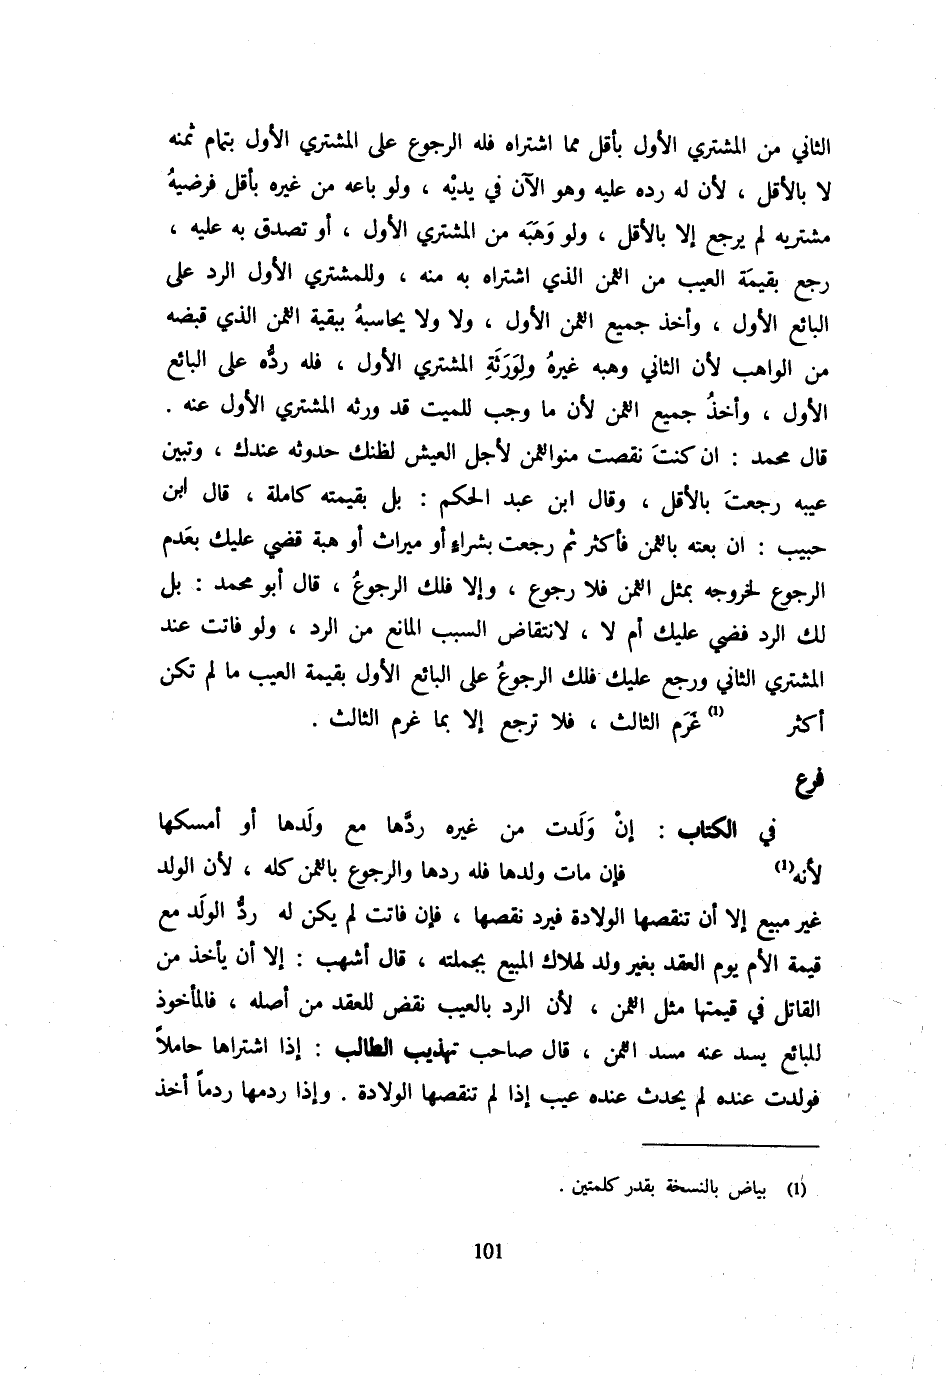 الثاني من المشتري الأول بأقل مما اشتراه فله الرجوع على المشتري الأول بتمام ثمنه
لا بالأقل ، لأن له رده عليه وهو الآن في يديْه ، ولو باعه من غيره بأقل فرضيهُ
مشتريه لم يرجع إلا بالأقل ، ولو وَهَبَه من المشتري الأول ، أو تصدق به عليه ،
رجع بقيمَة العيب من الثمن الذي اشتراه به منه ، وللمشتري الأول الرد على
البائع الأول ، وأخذ جميع الثمن الأول ، ولا ولا يحاسبهُ ببقية الثمن الذي قبضه
من الواهب لأن الثاني وهبه غيرهُ ولِوَرَثَةِ المشتري الأول ، فله ردُّه على البائع
الأول ، وأخذُ جميع الثمن لأن ما وجب للميت قد ورثه المشتري الأول عنه .
قال محمد : ان كنتَ نقصت منوالثمن لأجل العيش لظنك حدوثه عندك ، وتبين
عيبه رجعتَ بالأقل ، وقال ابن عبد الحكم : بل بقيمته كاملة ، قال ابن
حبيب : ان بعته بالثمن فأكثر ثم رجعت بشراءٍ أو ميراث أو هبة قضي عليك بعَدم
الرجوع لخروجه بمثل الثمن فلا رجوع ، وإلا فلك الرجوعُ ، قال أبو محمد : بل
لك الرد قضي عليك أم لا ، لانتقاض السبب المانع من الرد ، ولو فاتت عند
المشتري الثاني ورجع عليك فلك الرجوعُ على البائع الأول بقيمة العيب ما لم تكن
أكثر (1) غَرَم الثالث ، فلا ترجع إلا بما غرم الثالث .
فرع
في الكتاب : إنْ وَلَدت من غيره ردَّها مع ولَدها أو أمسكها
لأنه (1) فإن مات ولدها فله ردها والرجوع بالثمن كله ، لأن الولد
غير مبيع إلا أن تنقصها الولادة فيرد نقصها ، فإن فاتت لم يكن له ردُّ الولَد مع
قيمة الأم يوم العقد بغير ولد لهلاك المبيع بجملته ، قال أشهب : إلا أن يأخذ من
القاتل في قيمتها مثل الثمن ، لأن الرد بالعيب نقض للعقد من أصله ، فالمأخوذ
للبائع يسد عنه مسد الثمن ، قال صاحب تهذيب الطالب : إذا اشتراها حاملاً
فولدت عنده لم يحدث عنده عيب إذا لم تنقصها الولادة . وإذا ردمها ردماً أخذ
(1) بياض بالنسخة بقدر كلمتين .
101